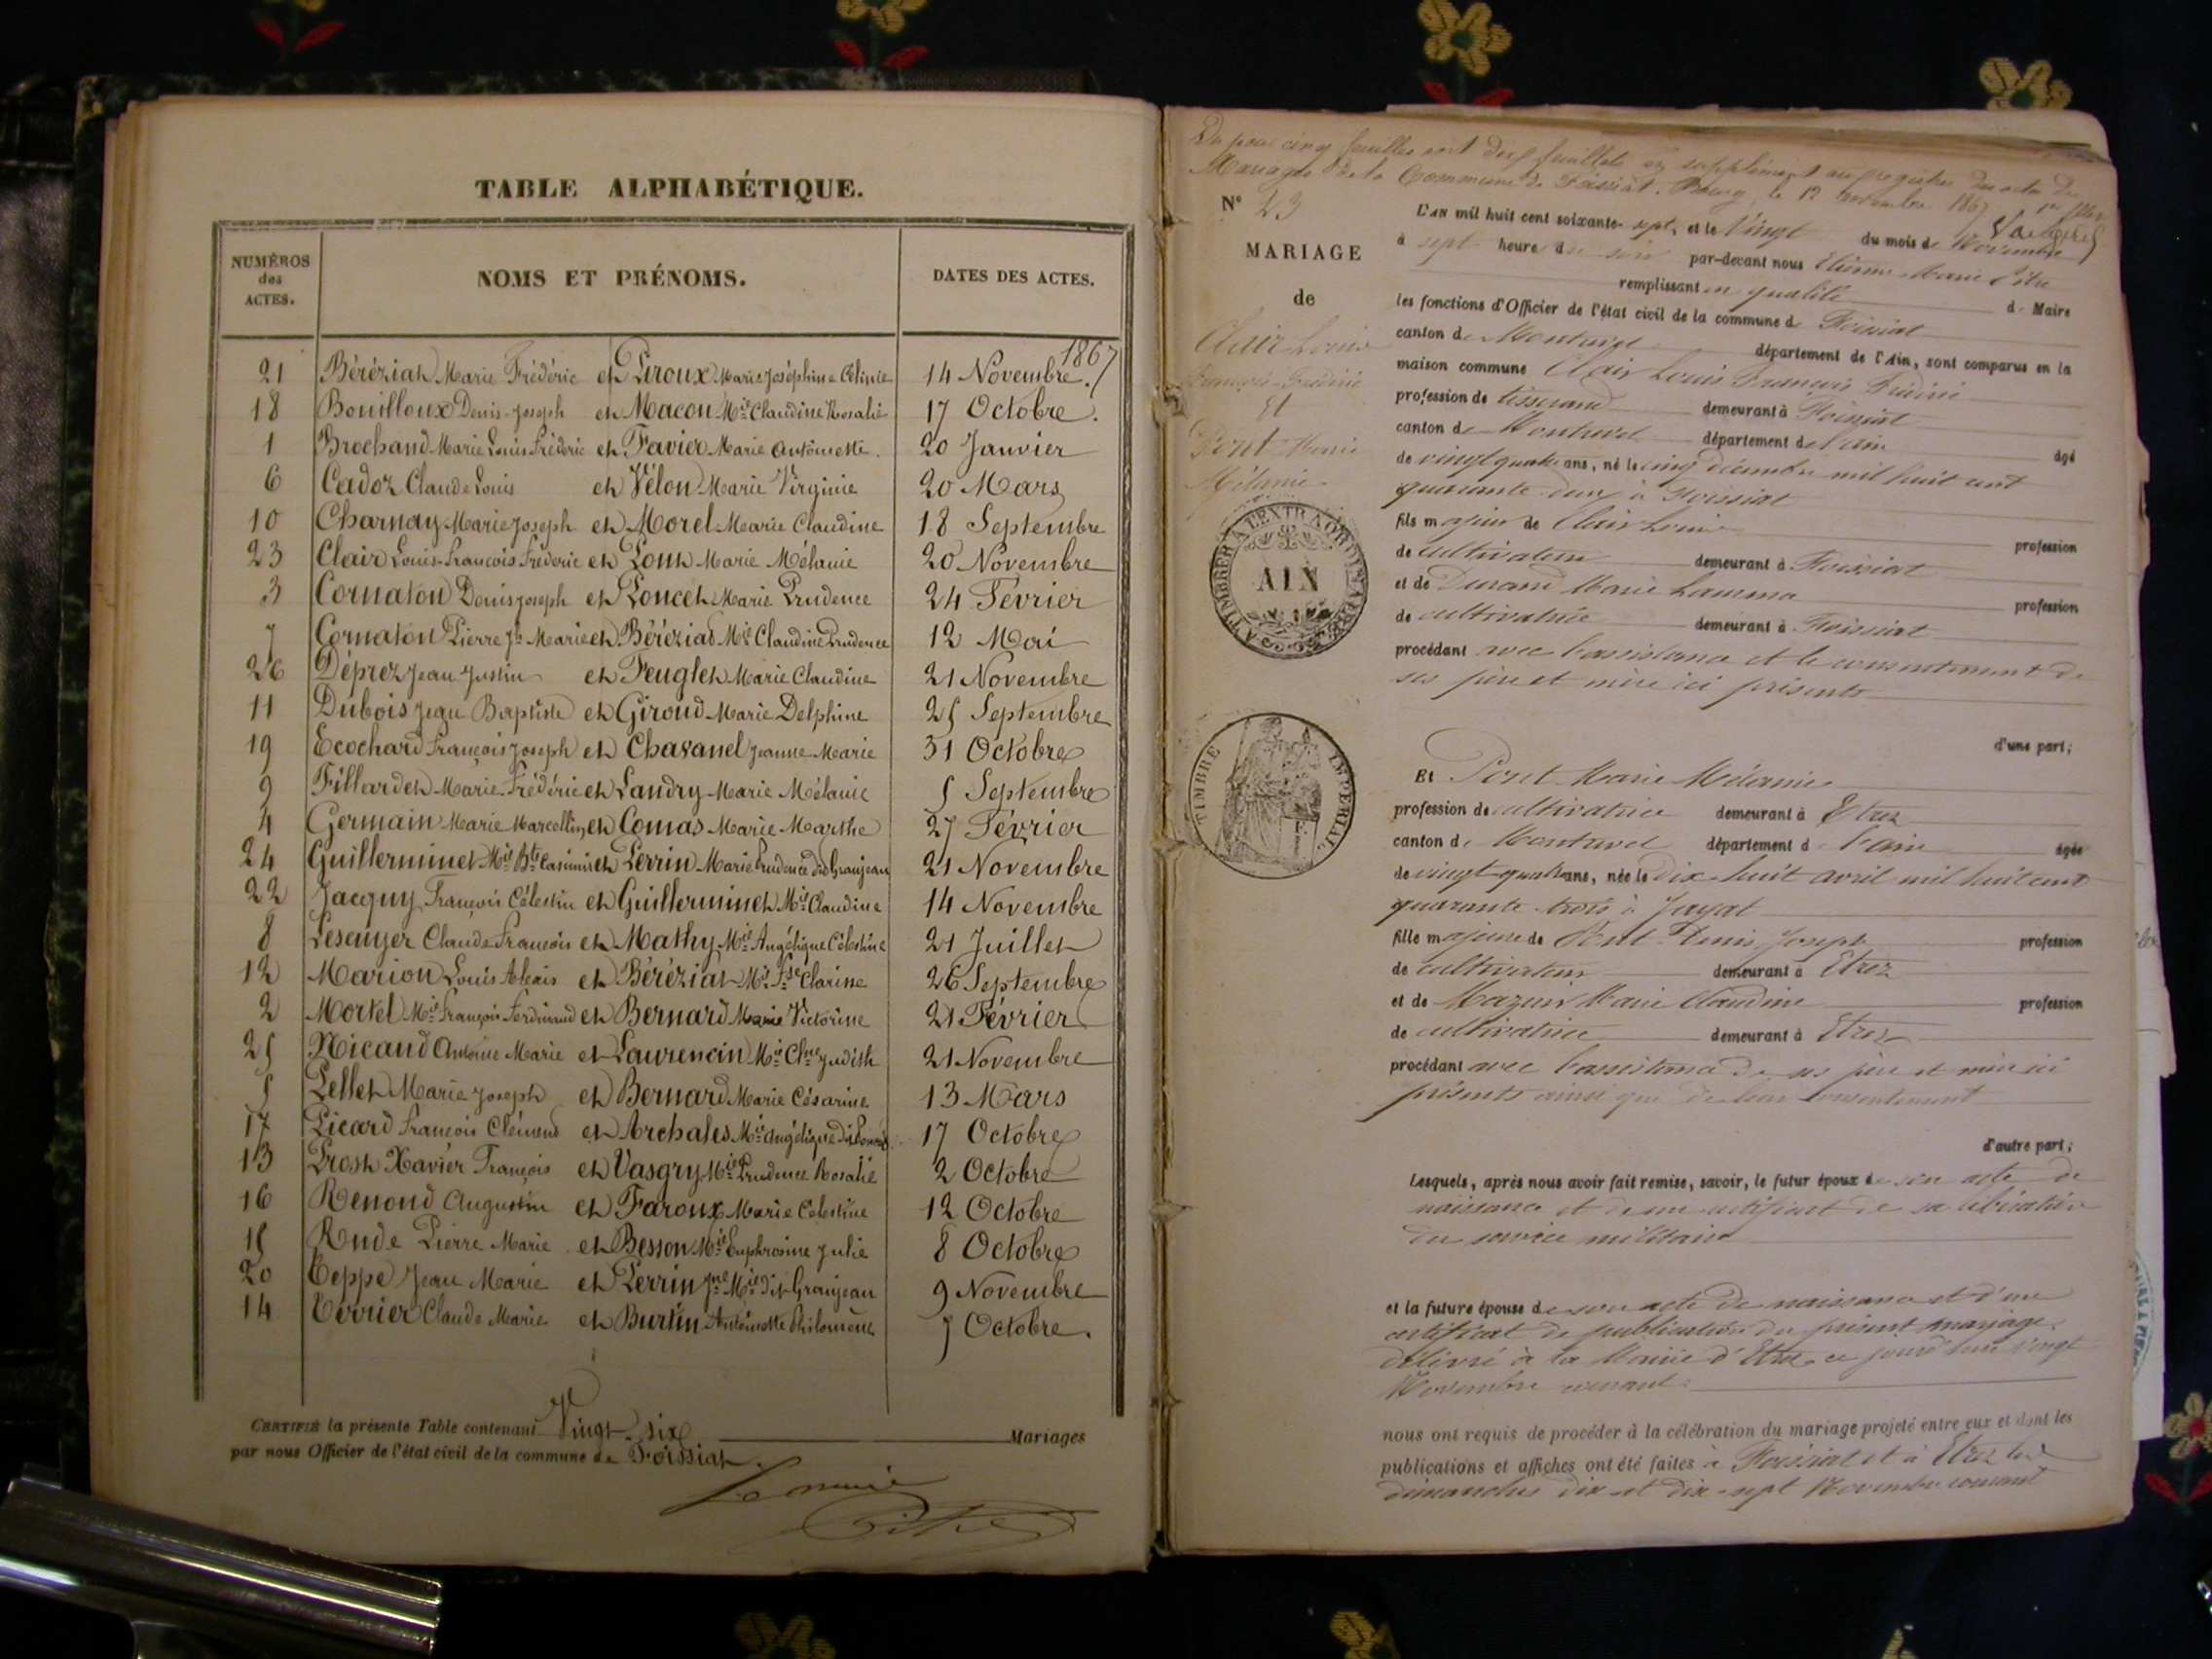 TABLE ALPHABÉTIQUE.
NUMÉROS des ACTES. NOMS ET PRÉNOMS. DATES DES ACTES.
1867
21 Béréziat Marie Frédéric et Piroux Marie Joséphine Célinie 14 Novembre.
18 Bouilloux Denis-Joseph et Macon Mie Claudine Rosalie 17 Octobre.
1 Brochand Marie Louis Frédéric et Favier Marie Antoinette. 20 Janvier
6 Cadoz Claude Louis et Vélon Marie Virginie 20 Mars
10 Charnay Marie Joseph et Morel Marie Claudine 18 Septembre
23 Clair Louis-François Fréderic et Pont Marie Mélanie 20 Novembre
3 Cornaton Denis Joseph et Poncet Marie Prudence 24 Février
7 Cornaton Pierre Jh Marie et Béréziat Mie Claudine Prudence 12 Mai
26 Déprez Jean Justin et Feuglet Marie Claudine 21 Novembre
11 Dubois Jean Baptiste et Giroud Marie Delphine 25 Septembre
19 Ecochard François Joseph et Chavanel Jeanne Marie 31 Octobre
9 Fillardet Marie-Frédéric et Landry Marie Mélanie 5 Septembre
4 Germain Marie Marcellin et Comas Marie Marthe 27 Février
24 Guillerminet Mie Bte Casimir et Perrin Marie Prudence dit Granjean 21 Novembre
22 Jacquy François Célestin et Guillerminet Mie Claudine 14 Novembre
8 Lescuyer Claude François et Mathy Mie Angélique Célestine 21 Juillet
12 Marion Louis Alexis et Béréziat Mie Fse Clarisse 26 Septembre
2 Mortel Mie François Ferdinand et Bernard Marie Victorine 21 Février
25 Nicand Antoine Marie et Laurencin Mie Clne Judith 21 Novembre
5 Pellet Marie Joseph et Bernard Marie Césarine 13 Mars
17 Picard François Clément et Archales Mie Angélique 17 Octobre
13 Prost Xavier François et Vasgry Mie Prudence Rosalie 2 Octobre
16 Renond Augustin et Faroux Marie Célestine 12 Octobre
15 Rude Pierre Marie et Besson Mie Euphrosine Julie 8 Octobre
20 Teppe Jean Marie et Perrin Jne Mie dit Granjean 9 Novembre
14 Terrier Claude Marie et Burtin Antoinette Philomène 7 Octobre.
CERTIFIÉ la présente Table contenant Vingt-six Mariages
par nous Officier de l'état civil de la commune de Foissiat.
Le maire
Pitre
cinq feuilles feuillets supplément au registre des actes de
Mariages de la Commune de Foissiat. Bourg, le 12 novembre 1867
N° 23
MARIAGE
de
Clair Louis
François-Frédéric
Et
Pont Marie
Mélanie
A TIMBRER À L'EXTRAORDINAIRE
AIN
TIMBRE IMPÉRIAL
L'AN mil huit cent soixante-sept, et le Vingt du mois de Novembre
à sept heure du soir par-devant nous Etienne Marie Pitre
remplissant en qualité de Maire
les fonctions d'Officier de l'état civil de la commune de Foissiat
canton de Montrevel département de l'Ain, sont comparus en la
maison commune Clair Louis François Frédéric
profession de tisserand demeurant à Foissiat
canton de Montrevel département de l'ain âgé
de vingt quatre ans, né le cinq décembre mil huit cent
quarante deux à Foissiat
fils majeur de Clair Louis profession
de cultivateur demeurant à Foissiat
et de Durand Marie Laurence profession
de cultivatrice demeurant à Foissiat
procédant avec l'assistance et le consentement de
ses père et mère ici présents
d'une part;
Et Pont Marie Mélanie
profession de cultivatrice demeurant à Etrez
canton de Montrevel département d l'ain âgée
de vingt quatre ans, née le dix huit avril mil huit cent
quarante trois à Jayat
fille majeure de Pont Denis Joseph profession
de cultivateur demeurant à Etrez
et de Mazuir Marie Claudine profession
de cultivatrice demeurant à Etrez
procédant avec l'assistance de ses père et mère ici
présents ainsi que de leur consentement
d'autre part;
Lesquels, après nous avoir fait remise, savoir, le futur époux de son acte de
naissance et d'un certificat de sa libération
du service militaire
et la future épouse de son acte de naissance et d'un
certificat de publication du présent mariage
délivré à la Mairie d'Etrez ce jourd'hui vingt
Novembre courant
nous ont requis de procéder à la célébration du mariage projeté entre eux et dont les
publications et affiches ont été faites à Foissiat et à Etrez les
dimanches dix et dix-sept Novembre courant